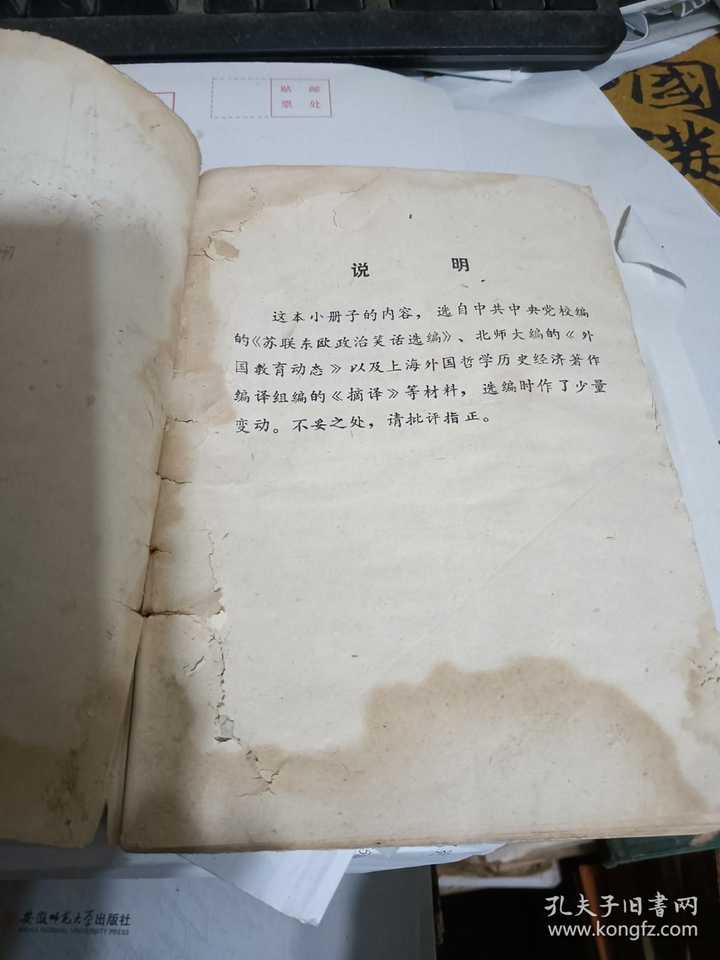 贴邮
票处
國
说明
这本小册子的内容，选自中共中央党校编
的《苏联东欧政治笑话选编》、北师大编的《外
国教育动态》以及上海外国哲学历史经济著作
编译组编的《摘译》等材料，选编时作了少量
变动。不妥之处，请批评指正。
安徽师范大学出版社
ANHUI NORMAL UNIVERSITY PRESS
孔夫子旧书网
www.kongfz.com